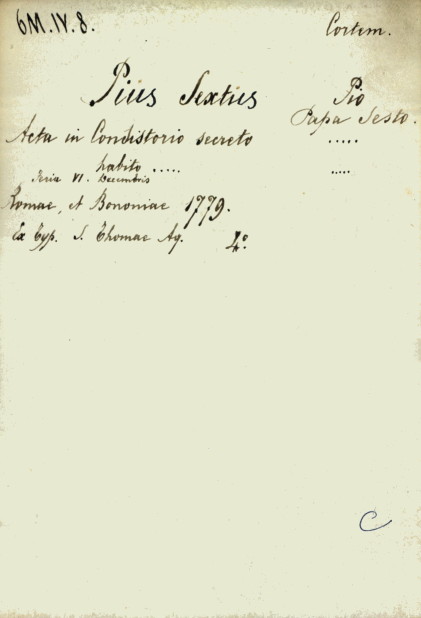 6M.IV.8.
Cortem.
Pius Sextus
Pio
Papa Sesto.
Acta in Condistorio secreto
.....
habito .....
.....
Feria VI. Decembris
Romae, et Bononiae 1779.
Ex Typ. S. Thomae Aq. 4º.
C